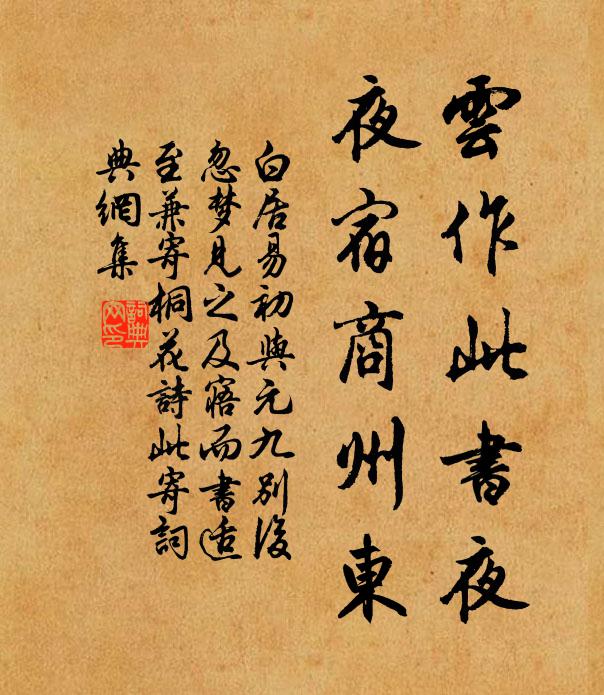 雲作此書夜
夜宿商州東
白居易初與元九別後
忽梦見之及寤而書适
至兼寄桐花詩此寄詞
典網集
詞典